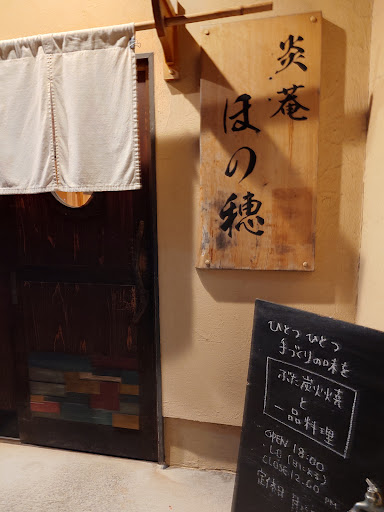 炎菴
ほの穂
ひとつひとつ
手づくりの味を
ぶた炭火焼
と
一品料理
OPEN 18:00
CLOSE 12:00
PM
定休日